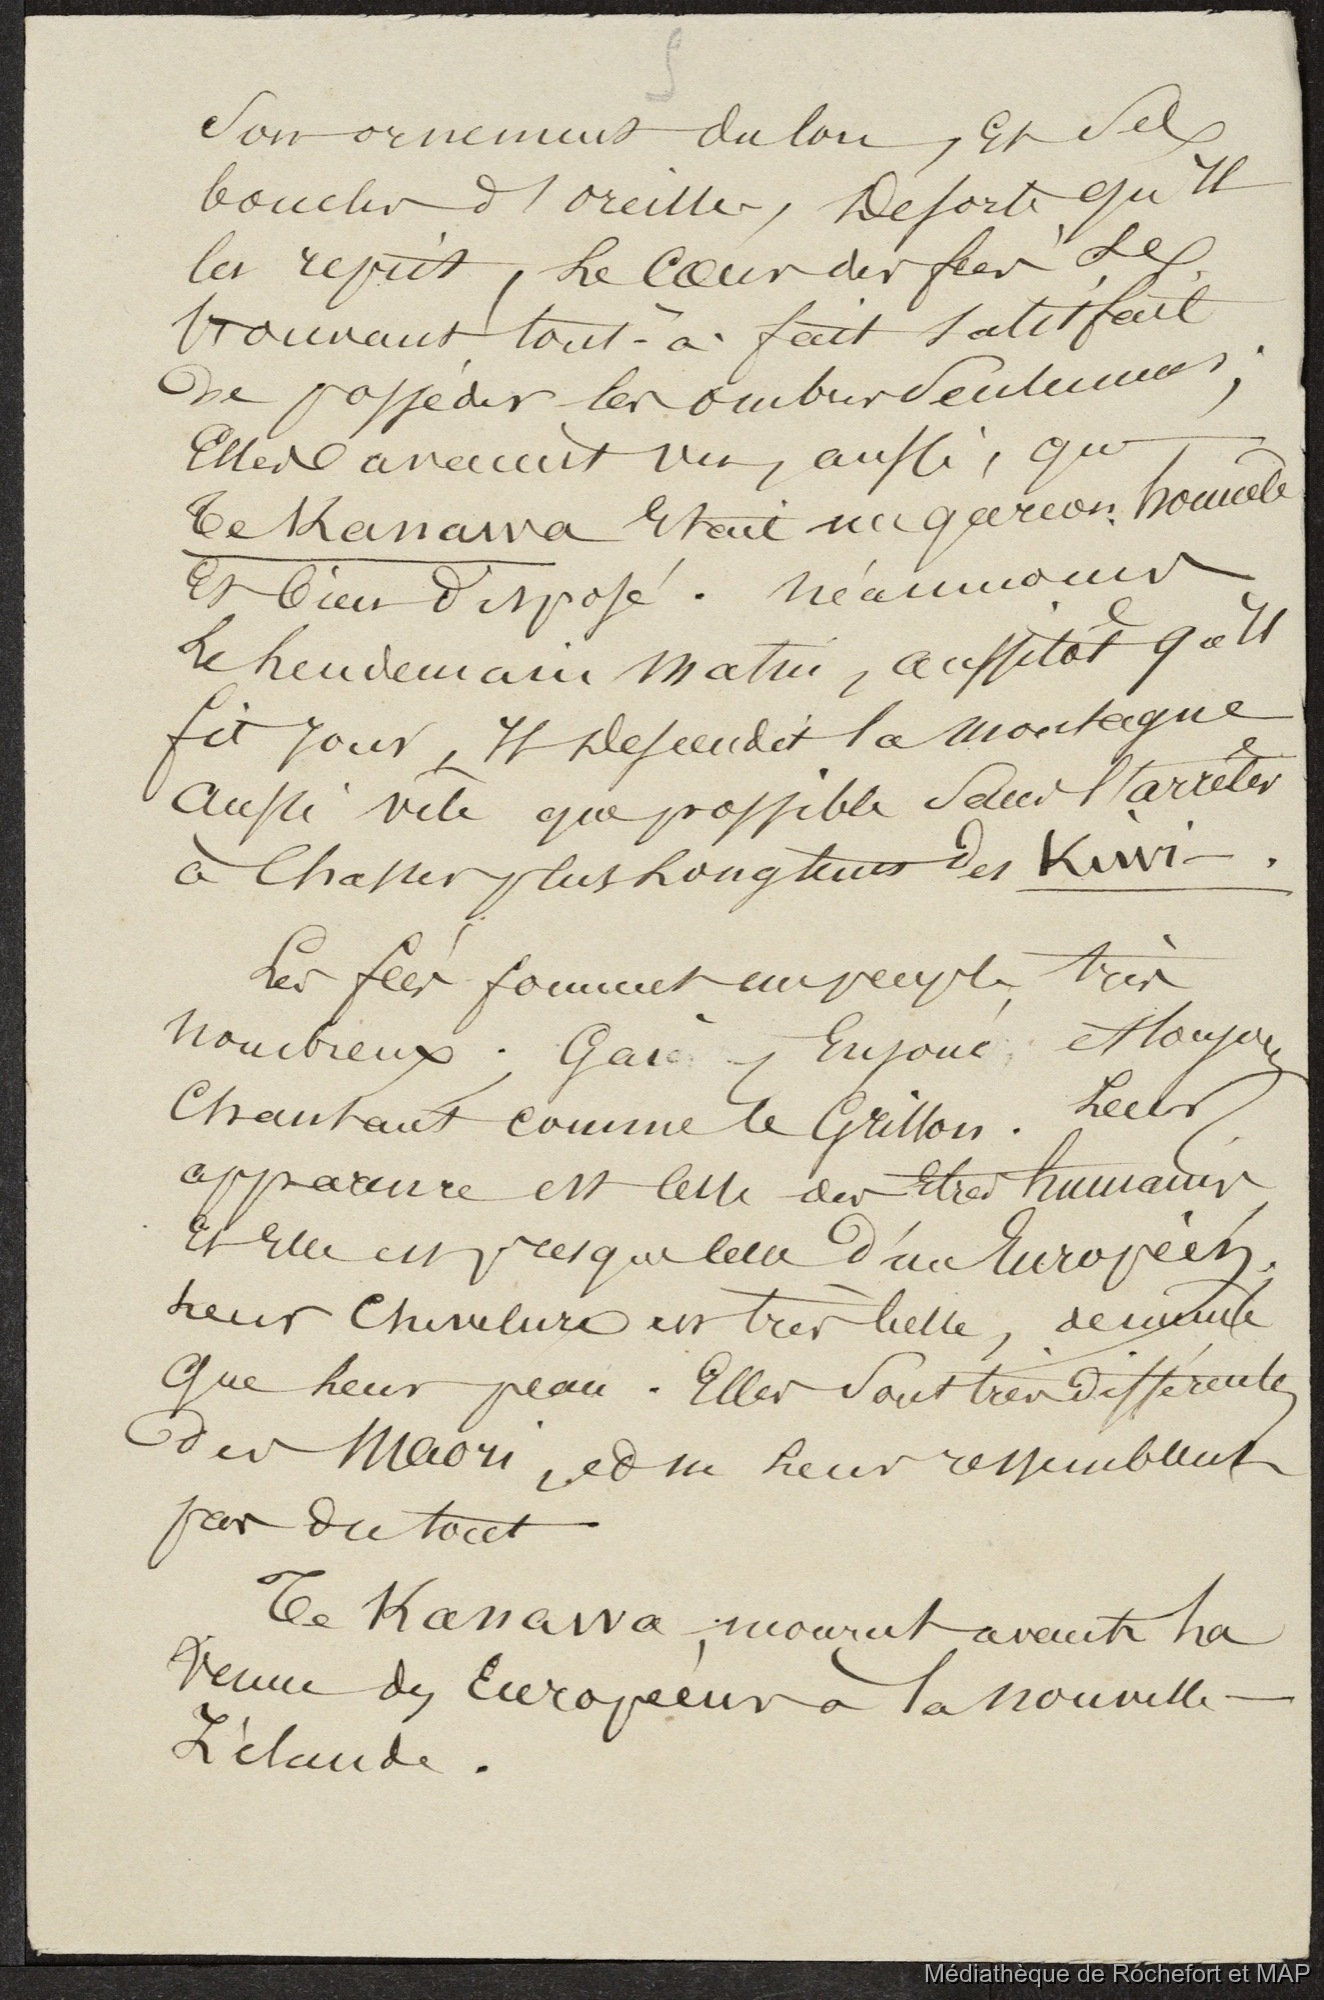 5
Son ornement du cou, et ses
boucles d'oreilles, desorte qu'Il
les reprit, le Cœur des fées se
trouvant tout-à-fait satisfait
de posséder les ombres seulement;
Elles avaient vu, aussi, que
Te Kanawa Etait un garçon honnête
Et bien disposé. Néanmoins
le lendemain matin, aussitôt qu'Il
fit jour, Il descendit la montagne
aussi vite que possible sans s'arrêter
à Chasser plus longtems des Kiwi.
Les fées forment un peuple très
nombreux. Gai, Enjoué, et toujours
Chantant comme le Grillon. Leur
apparence est celle des Etres humains
Et Elle est presque celle d'un Européén.
Leur Chevelure est très belle, de même
que leur peau. Elles sont très différentes
des Maori, et ne leur ressemblent
pas du tout
Te Kanawa, mourut avant la
venue des Européens à la nouvelle-
Zélande.
Médiathèque de Rochefort et MAP